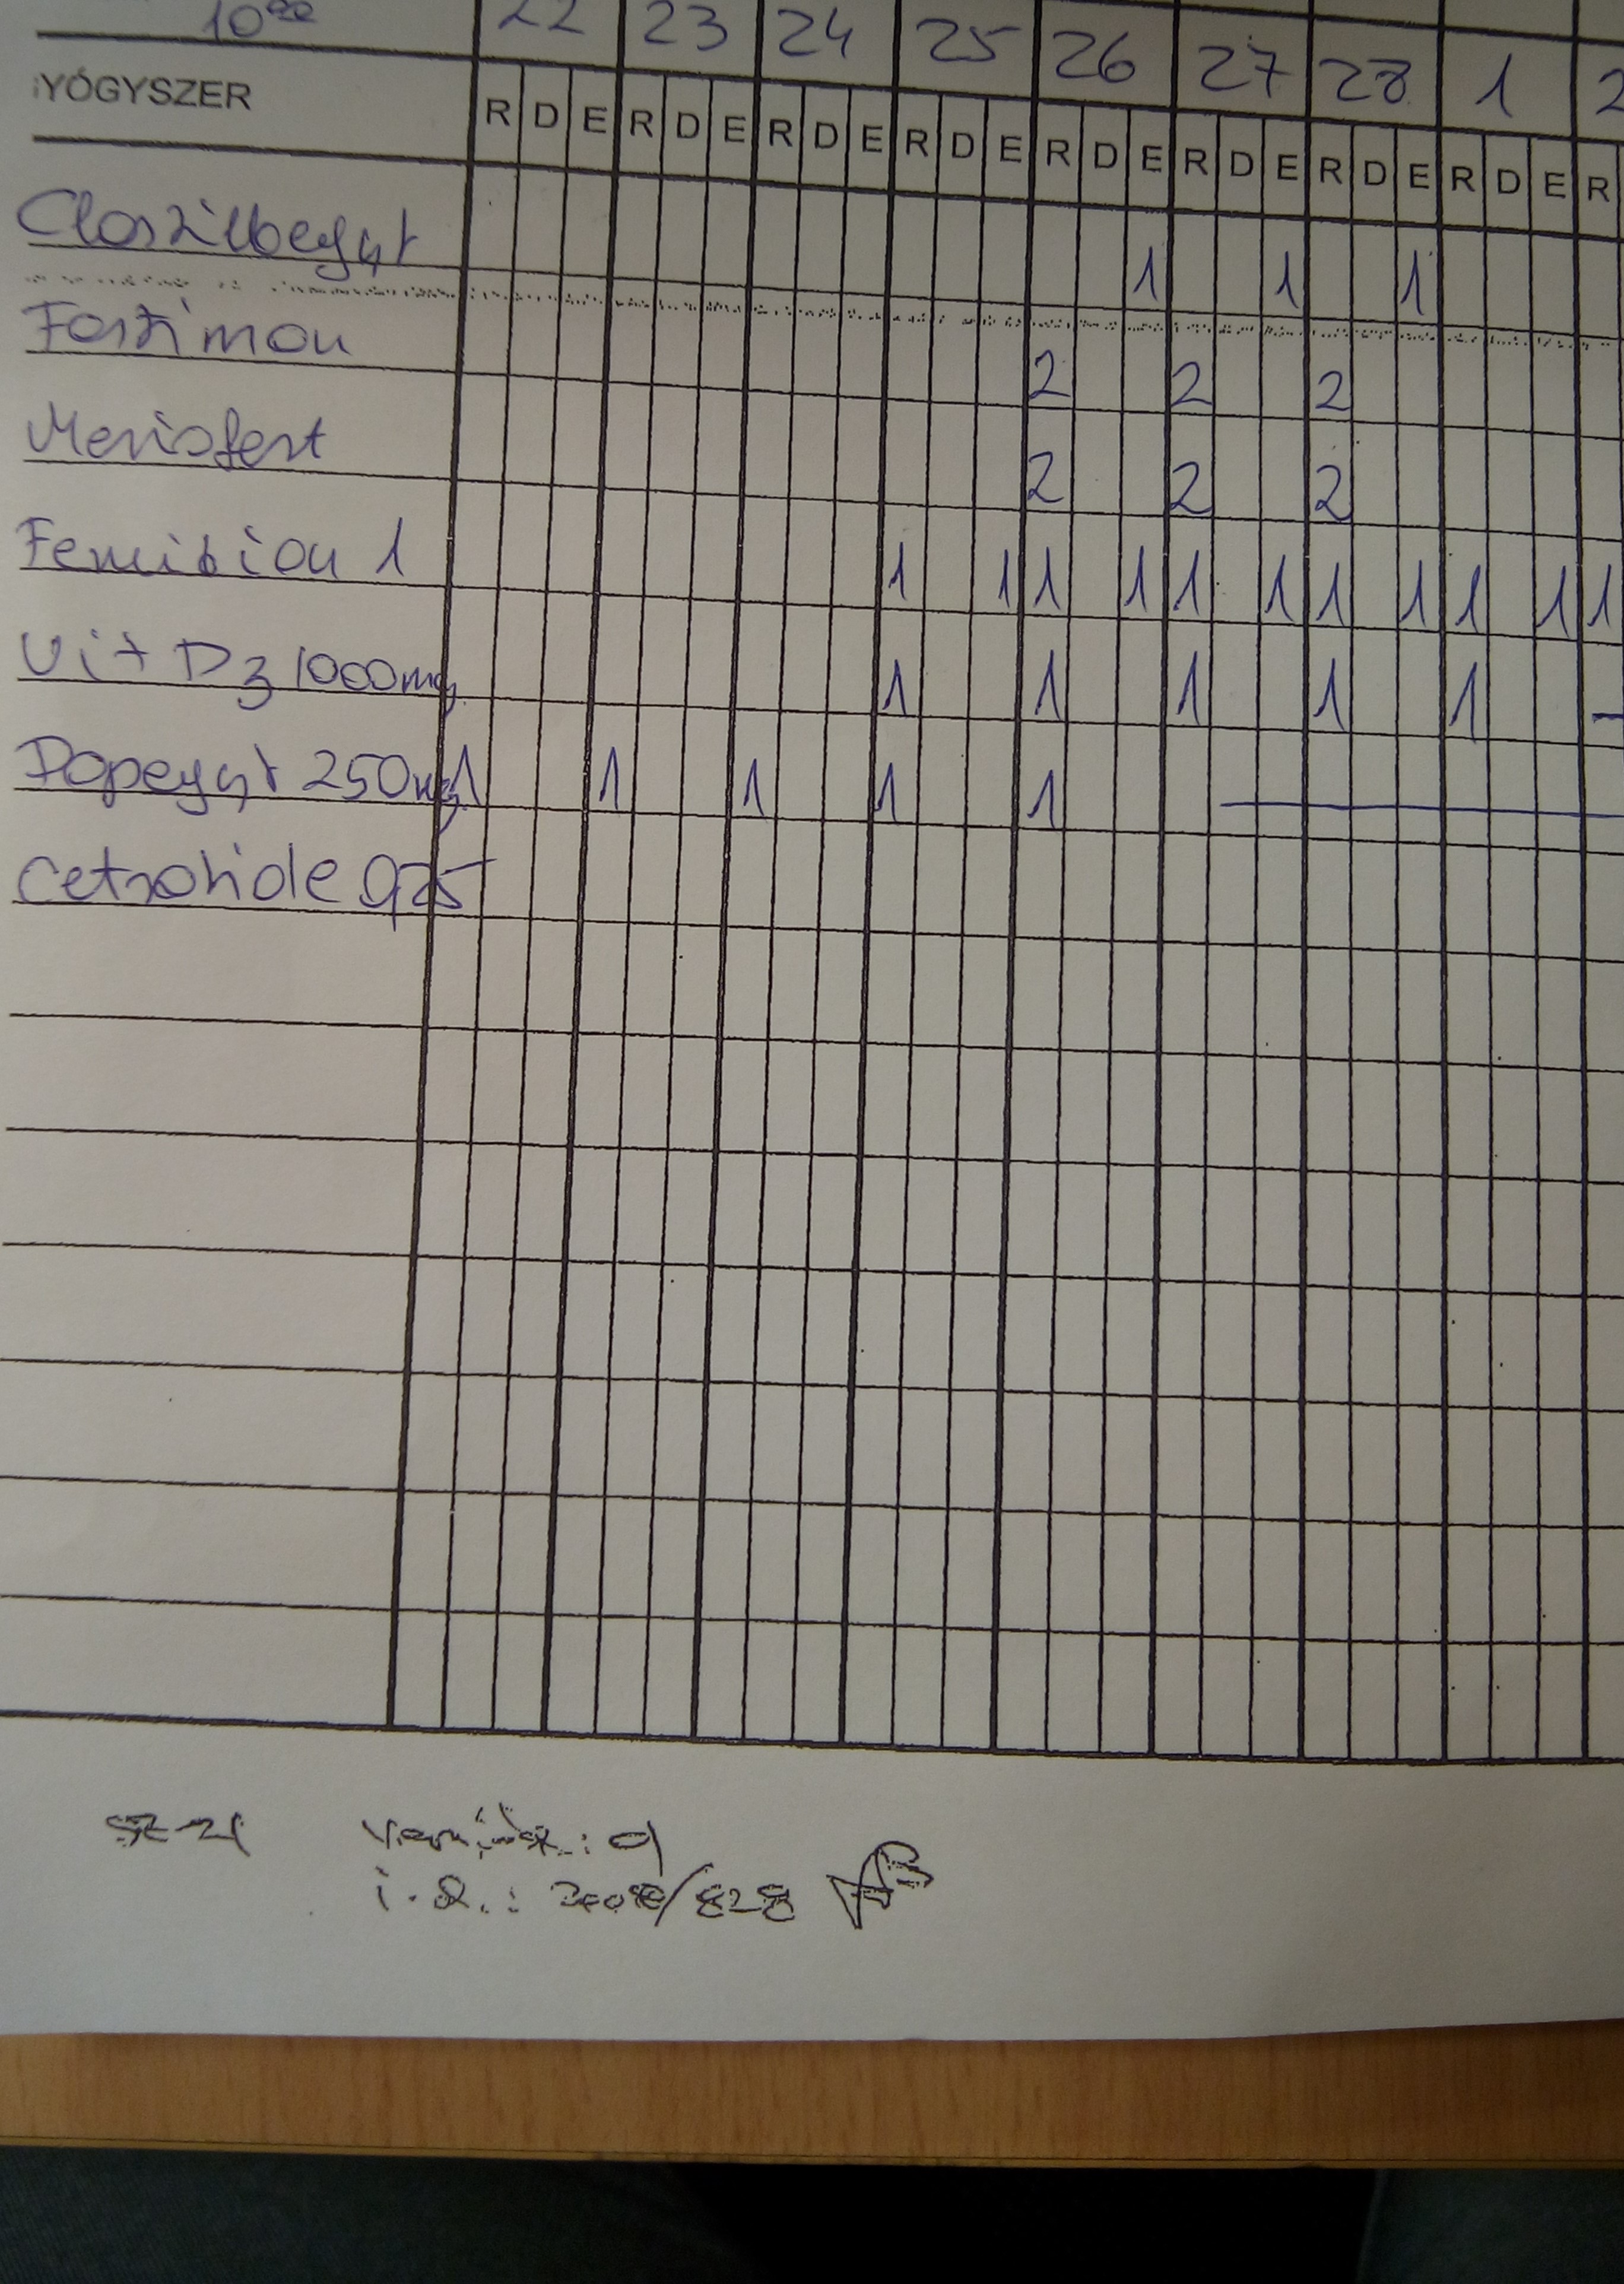 10 22 23 24 25 26 27 28 1 2
YÓGYSZER R D E R D E R D E R D E R D E R D E R D E R D E R
Clostilbegyt 1 1 1
Fostimon 2 2 2
Meriofert 2 2 2
Femibion 1 1 1 1 1 1 1 1 1 1 1 1
Vit D3 1000mg 1 1 1 1 1 -
Dopegyt 250mg 1 1 1 1 1
Cetrotide 0,25